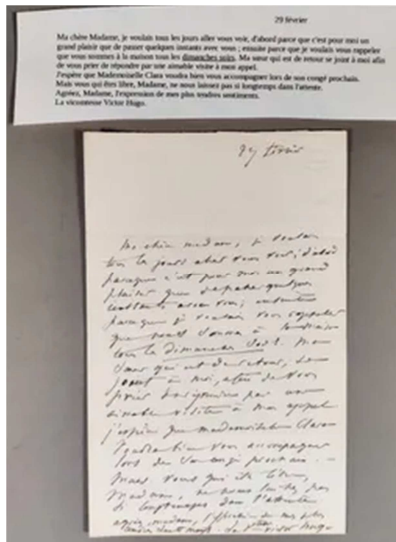 29 février
Ma chère Madame, je voulais tous les jours aller vous voir, d'abord parce que c'est pour moi un
grand plaisir que de passer quelques instants avec vous ; ensuite parce que je voulais vous rappeler
que vous sommes à la maison tous les dimanches soirs. Ma sœur qui est de retour se joint à moi afin
de vous prier de répondre par une aimable visite à mon appel.
J'espère que Mademoiselle Clara voudra bien vous accompagner lors de son congé prochain.
Mais vous qui êtes libre, Madame, ne nous laissez pas si longtemps dans l'attente.
Agréez, Madame, l'expression de mes plus tendres sentiments.
La vicomtesse Victor Hugo.
29 février
Ma chère madame, je voulais
tous les jours aller vous voir, d'abord
parceque c'est pour moi un grand
plaisir que de passer quelques
instants avec vous, ensuite
parceque je voulais vous rappeler
que nous sommes à la maison
tous les dimanches soirs. Ma
sœur qui est de retour, se
joint à moi, afin de vous
prier de répondre par une
aimable visite à mon appel
j'espère que mademoiselle Clara
voudra bien vous accompagner
lors de son congé prochain. –
Mais vous qui êtes libre,
Madame, ne nous laissez pas
si longtemps dans l'attente
agréez, madame, l'expression de mes plus
tendres sentiments. La Vtesse Victor Hugo